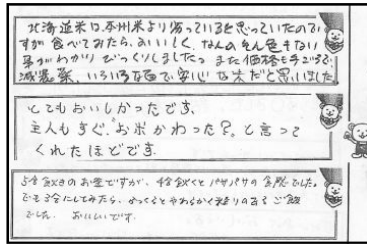 北海道米は、本州米より劣っていると思っていたので
すが食べてみたら、おいしく、なんのそん色もない
事がわかり びっくりしました。また価格も手ごろで
減農薬、いろいろな面で安心な米だと思いました。
とてもおいしかったです。
主人もすぐ、"お米かわった?"と言って
くれたほどです。
5合飲きのお釜ですが、4合飲くとパサパサの食感でした。
でも3合にしてみたら、ふっくらとやわらかく粘りのあるご飯
でした。おいしいです。